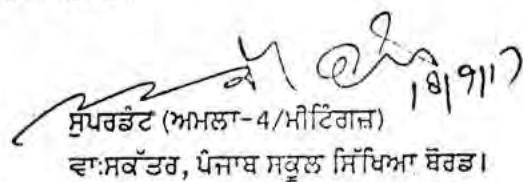 18/9/17
ਸੁਪਰਡੰਟ (ਅਮਲਾ-4/ਮੀਟਿੰਗਜ਼)
ਵਾ:ਸਕੱਤਰ, ਪੰਜਾਬ ਸਕੂਲ ਸਿੱਖਿਆ ਬੋਰਡ।